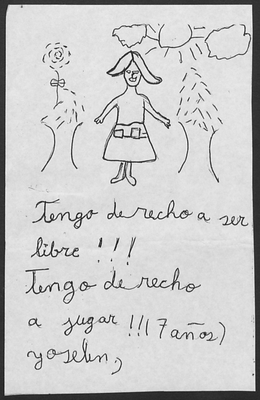 Tengo derecho a ser
libre !!!
Tengo derecho
a jugar !!! (7 años)
yoselin,